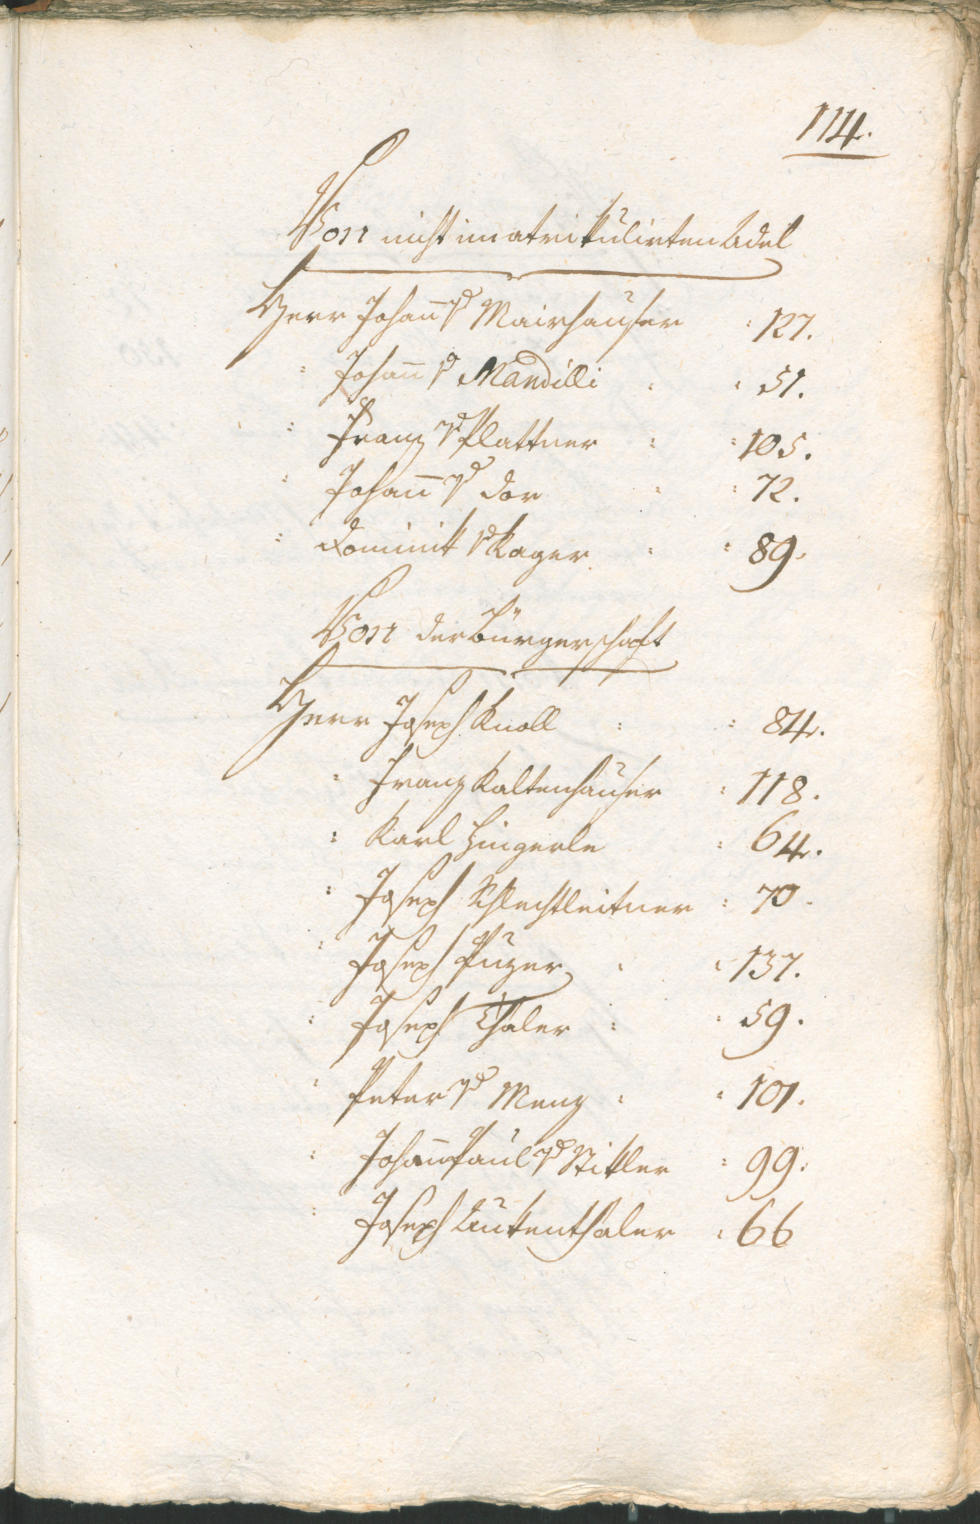 114.
Von nicht imatrikulirten Adel
Herr Johann v Mairhauser : 127.
: Johann v Mandilli : : 51.
: Franz v Plattner : : 105.
: Johann v Dor : : 72.
: Dominik v Kager : : 89.
Von der Bürgerschaft
Herr Joseph Knoll : : 84.
: Franz Kaltenhauser : 118.
: Karl Hingerle : 64.
: Joseph Schlechtleitner : 70.
: Joseph Puzer : : 137.
: Joseph Thaler : : 59.
: Peter v Menz : : 101.
: Johann Paul v Stikler : 99.
: Joseph Lutenthaler : 66